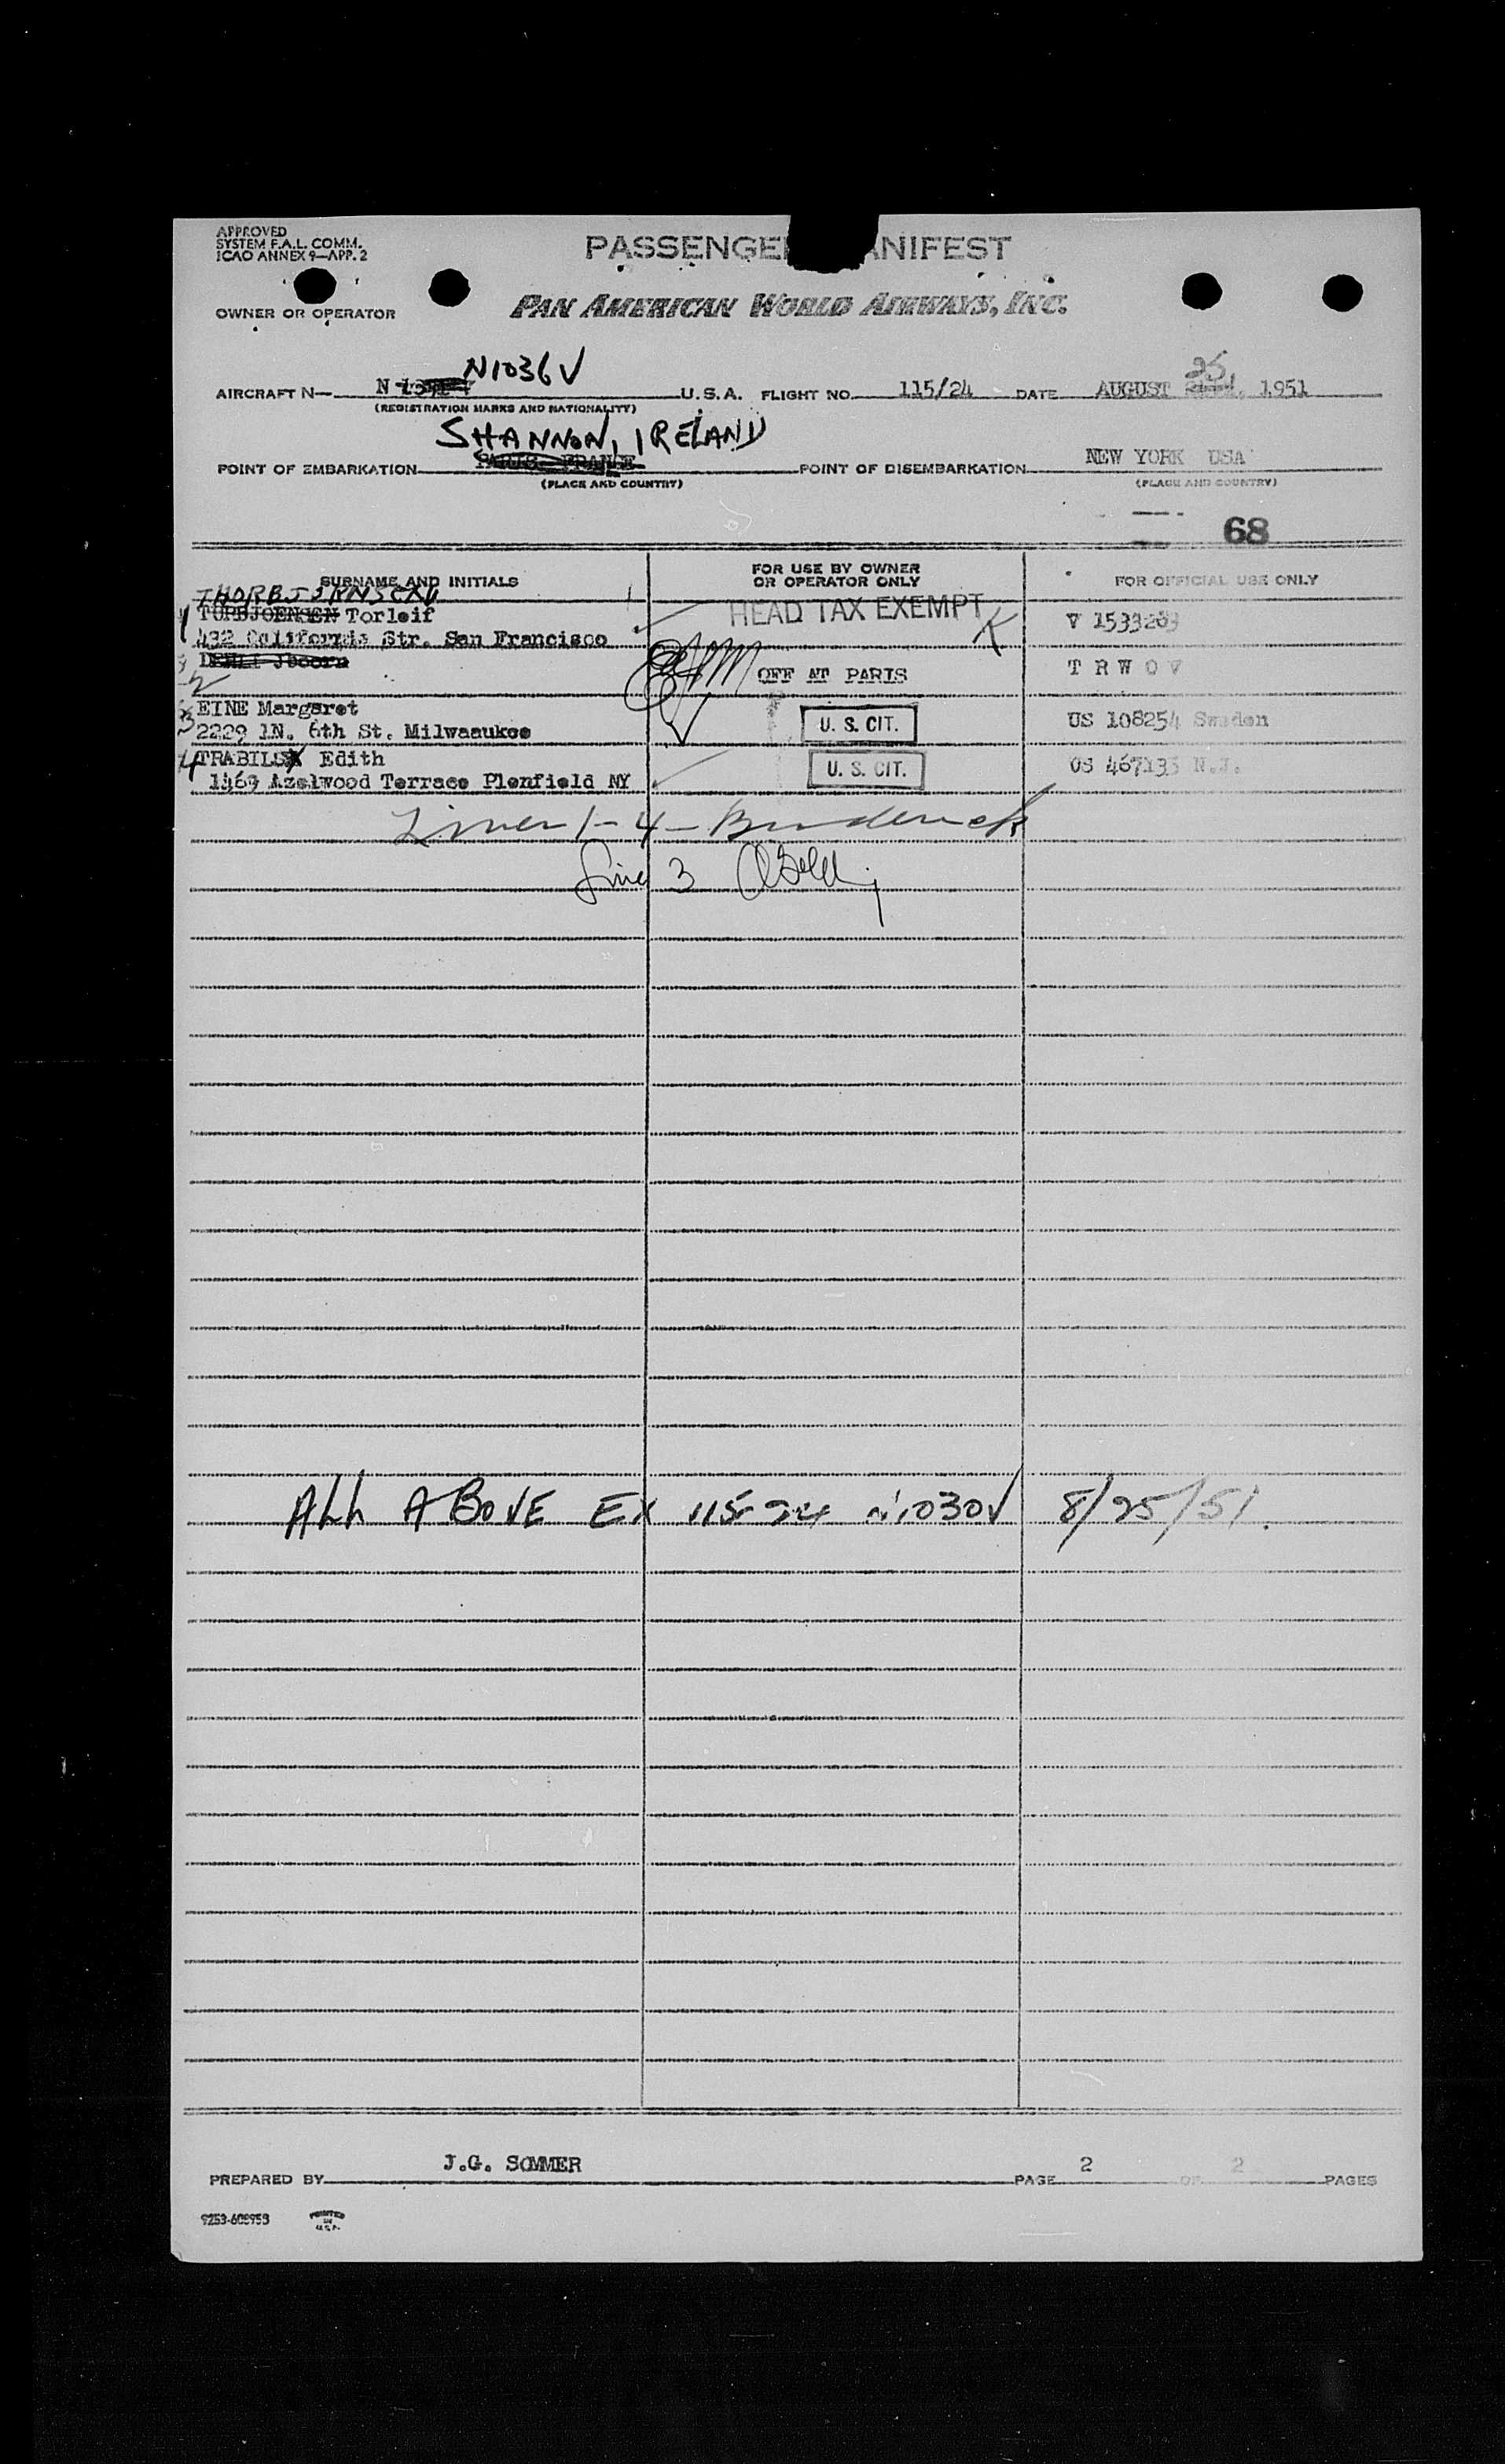 APPROVED
SYSTEM F.A.L. COMM.
ICAO ANNEX 9—APP. 2
PASSENGE ANIFEST
OWNER OR OPERATOR
PAN AMERICAN WORLD AIRWAYS, INC.
AIRCRAFT N— N N1036V U.S.A. FLIGHT NO. 115/24 DATE AUGUST 25, 1951
(REGISTRATION MARKS AND NATIONALITY)
SHANNON, IRELAND
POINT OF EMBARKATION PARIS FRANCE POINT OF DISEMBARKATION NEW YORK USA
(PLACE AND COUNTRY) (PLACE AND COUNTRY)
68
SURNAME AND INITIALS FOR USE BY OWNER OR OPERATOR ONLY FOR OFFICIAL USE ONLY
THORBJORNSEN
1 TORBJOENSEN Torleif HEAD TAX EXEMPT V 1533263
432 California Str. San Francisco
OFF AT PARIS T R W O V
2
3 EINE Margaret U. S. CIT. US 108254 Sweden
2229 1N. 6th St. Milwaaukee
4 TRABILSX Edith U. S. CIT. US 467133 N.J.
1463 Azelwood Terrace Plenfield NY
Lines 1-4- Broderick
Line 3
ALL ABOVE EX 115-24 N1030V 8/25/51.
PREPARED BY J.G. SOMMER PAGE 2 OF 2 PAGES
9253-608953 PRINTED IN U.S.A.